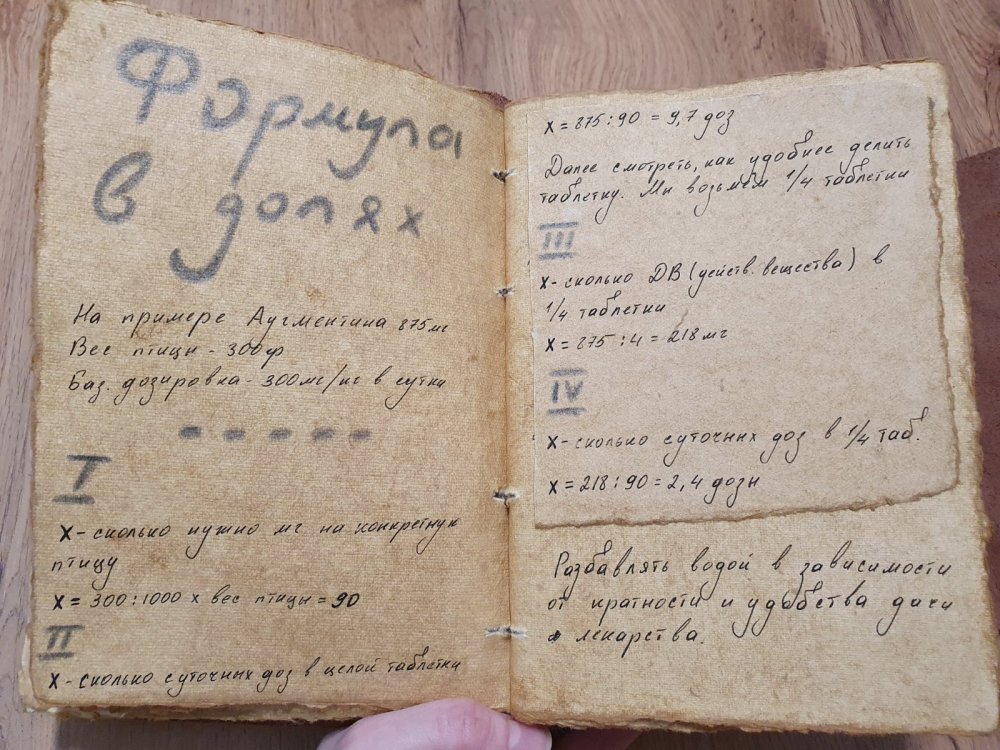 Формула
в долях
На примере Аугментина 875мг
Вес птицы - 300ф
Баз. дозировка - 300мг/кг в сутки
- - - - -
I
X - сколько нужно мг на конкретную
птицу
X = 300:1000 x вес птицы = 90
II
X - сколько суточных доз в целой таблетки
X = 875:90 = 9,7 доз
Далее смотреть, как удобнее делить
таблетку. Мы возьмём 1/4 таблетки
III
X - сколько ДВ (действ. вещества) в
1/4 таблетки
X = 875:4 = 218мг
IV
X - сколько суточных доз в 1/4 таб.
X = 218:90 = 2,4 дозы
Разбавлять водой в зависимости
от кратности и удобства дачи
лекарства.